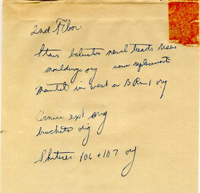 2nd Floor
Stair baluster newel treads risers
mouldings orig some replacement
Mantel in west or BRm 1 orig
Cornice ext orig
brackets orig
Shutters 106 + 107 orig